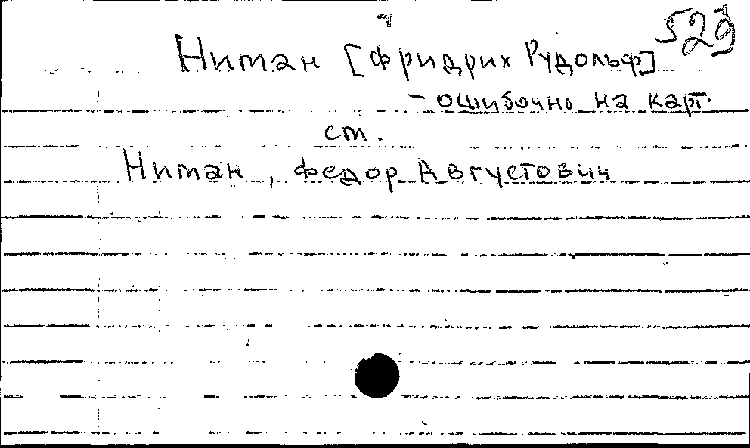 529
Нитан [Фридрих Рудольф]
- ошибочно на карт.
см.
Нитан, Федор Августович